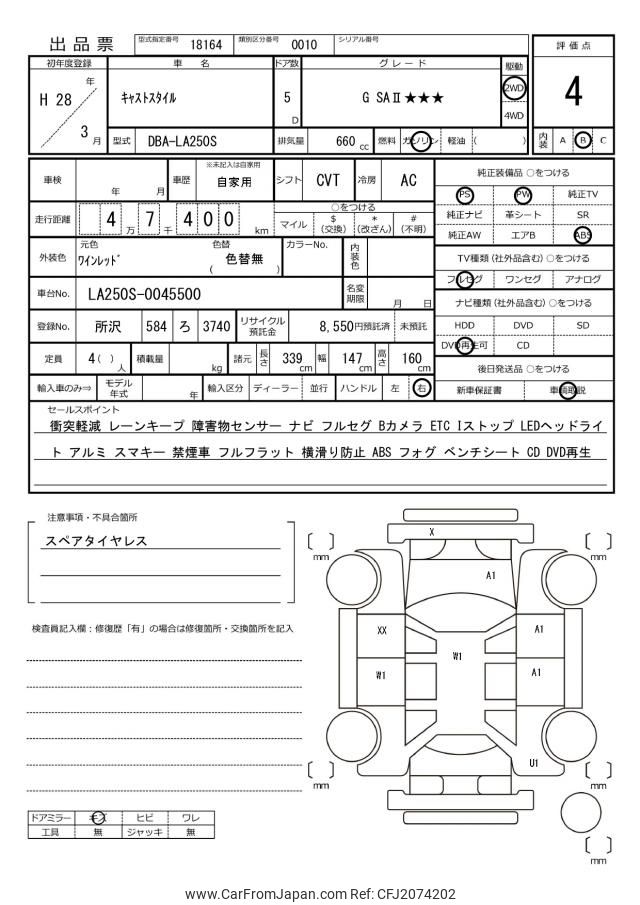 出品票
型式指定番号 18164 類別区分番号 0010 シリアル番号
評価点
4
内装 A B C
初年度登録 車名 ドア数 グレード 駆動
H 28 年 3 月
キャストスタイル 5 D G SAⅡ ★★★ 2WD 4WD
型式 DBA-LA250S 排気量 660 cc 燃料 ガソリン 軽油 ( )
車検 年 月 車歴 ※未記入は自家用 自家用 シフト CVT 冷房 AC
走行距離 4 万 7 千 4 0 0 km
○をつける
マイル $ (交換) * (改ざん) # (不明)
外装色 元色 ワインレッド 色替 ( 色替無 ) カラーNo. 内装色
車台No. LA250S-0045500 名変期限 月 日
登録No. 所沢 584 ろ 3740 リサイクル預託金 8,550円預託済 未預託
定員 4 ( ) 人 積載量 kg 諸元 長さ 339 cm 幅 147 cm 高さ 160 cm
輸入車のみ⇒ モデル年式 年 輸入区分 ディーラー 並行 ハンドル 左 右
純正装備品 ○をつける
PS PW 純正TV
純正ナビ 革シート SR
純正AW エアB ABS
TV種類(社外品含む) ○をつける
フルセグ ワンセグ アナログ
ナビ種類(社外品含む) ○をつける
HDD DVD SD
DVD再生可 CD
後日発送品 ○をつける
新車保証書 車輌取説
セールスポイント
衝突軽減 レーンキープ 障害物センサー ナビ フルセグ Bカメラ ETC Iストップ LEDヘッドライ
ト アルミ スマキー 禁煙車 フルフラット 横滑り防止 ABS フォグ ベンチシート CD DVD再生
注意事項・不具合箇所
スペアタイヤレス
検査員記入欄：修復歴「有」の場合は修復箇所・交換箇所を記入
ドアミラー キズ ヒビ ワレ
工具 無 ジャッキ 無
mm
mm
X
A1
XX
A1
W1
W1
A1
U1
mm
mm
mm
www.CarFromJapan.com Ref: CFJ2074202